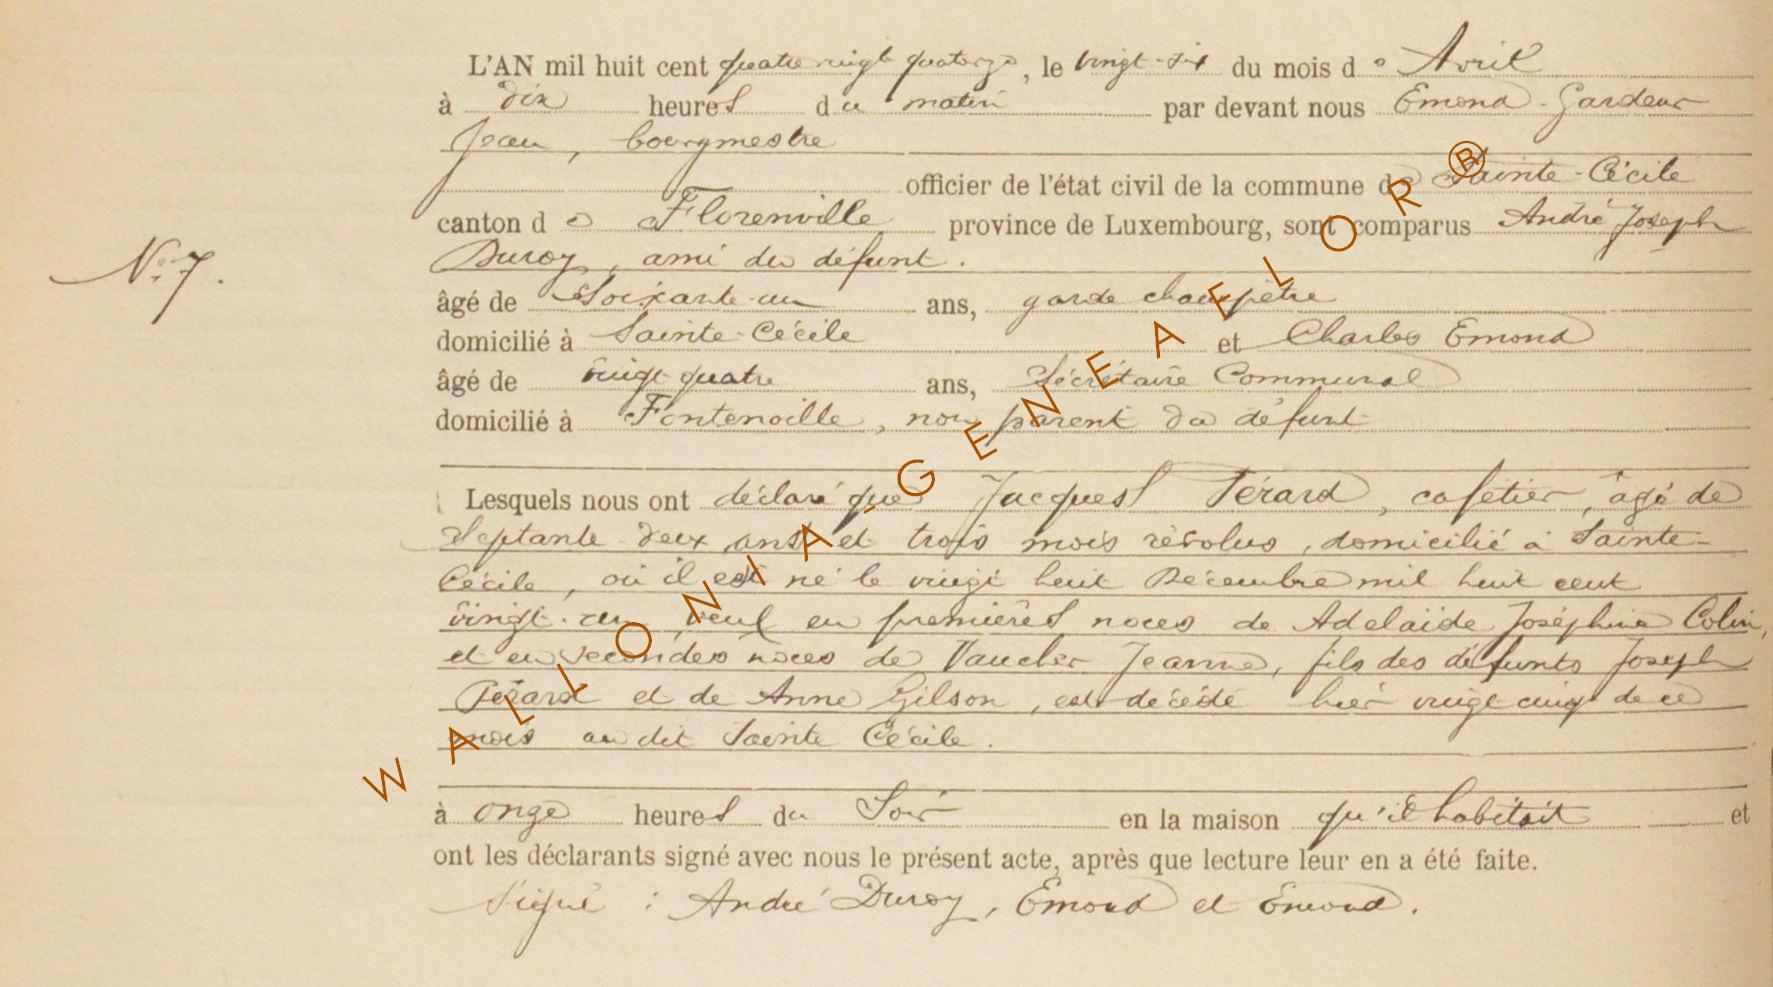 L'AN mil huit cent quatre vingt quatorze, le vingt-six du mois d'Avril
à dix heures du matin par devant nous Emond-Gardeur
Jean, bourgmestre
officier de l'état civil de la commune de Sainte-Cécile
canton de Florenville province de Luxembourg, sont comparus André Joseph
Duroy, ami du défunt.
N° 7.
âgé de Soixante-un ans, garde champêtre
domicilié à Sainte-Cécile et Charles Emond
âgé de vingt-quatre ans, Sécrétaire Communal
domicilié à Fontenoille, non parent du défunt
Lesquels nous ont déclaré que Jacques Pérard, cafetier, âgé de
Septante-deux ans et trois mois révolus, domicilié à Sainte-
Cécile, où il est né le vingt huit Décembre mil huit cent
vingt-un, veuf en premières noces de Adelaïde Joséphine Colin,
et en secondes noces de Vaucher Jeanne, fils des défunts Joseph
Pérard et de Anne Gilson, est décédé hier vingt cinq de ce
mois au dit Sainte Cécile.
à onze heures du Soir en la maison qu'il habitait et
ont les déclarants signé avec nous le présent acte, après que lecture leur en a été faite.
Signé : André Duroy, Emond et Emond.
WALLONIA-GENEAELOR®